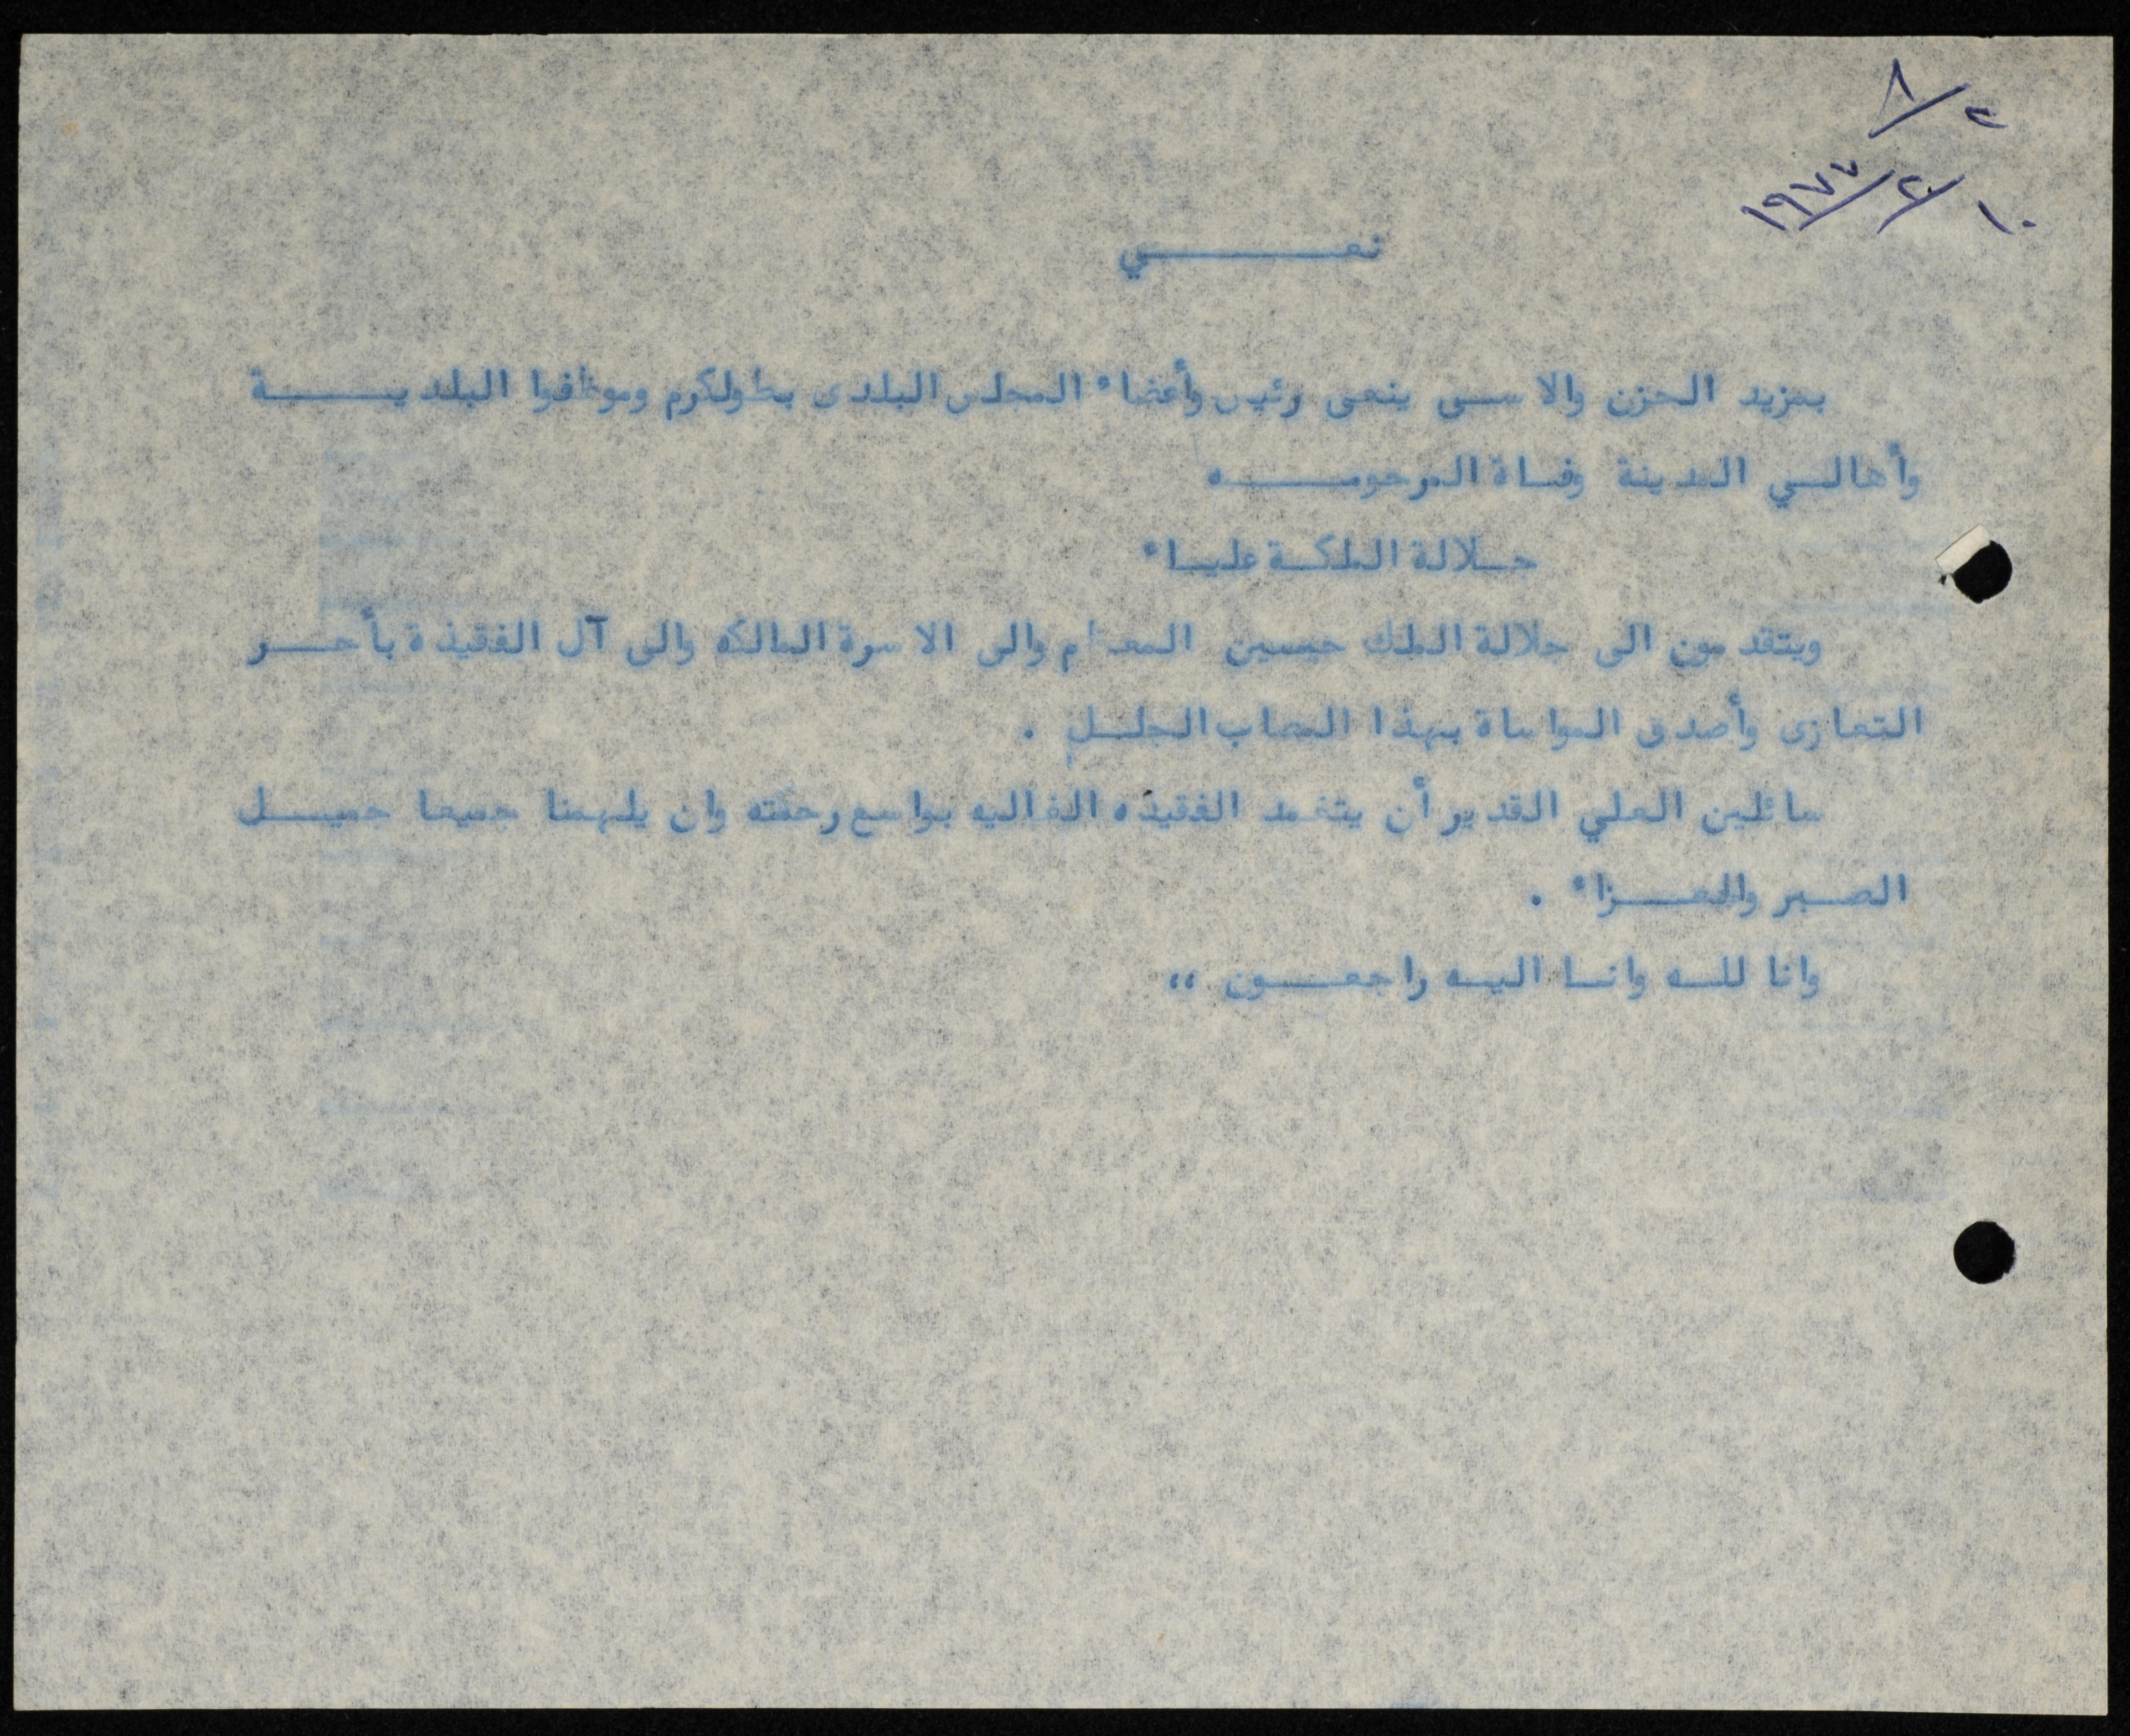 ٨/٢
١٩٧٧/٢/١٠
نعـــــــي
بمزيد الحزن والاسى ينعى رئيس وأعضاء المجلس البلدى بطولكرم وموظفوا البلديـــــة
وأهالي المدينة وفاة المرحومـــــه
جلالة الملكة علياء
ويتقدمون الى جلالة الملك حسين المعظم والى الاسرة المالكه والى آل الفقيدة بأحــر
التعازى وأصدق المواساة بهذا المصاب الجلل .
سائلين العلي القدير أن يتغمد الفقيده الغاليه بواسع رحمته وان يلهمنا جميعا جميـــل
الصبر والعـــزاء .
وانا للـه وانـا اليـه راجعـــون ،،